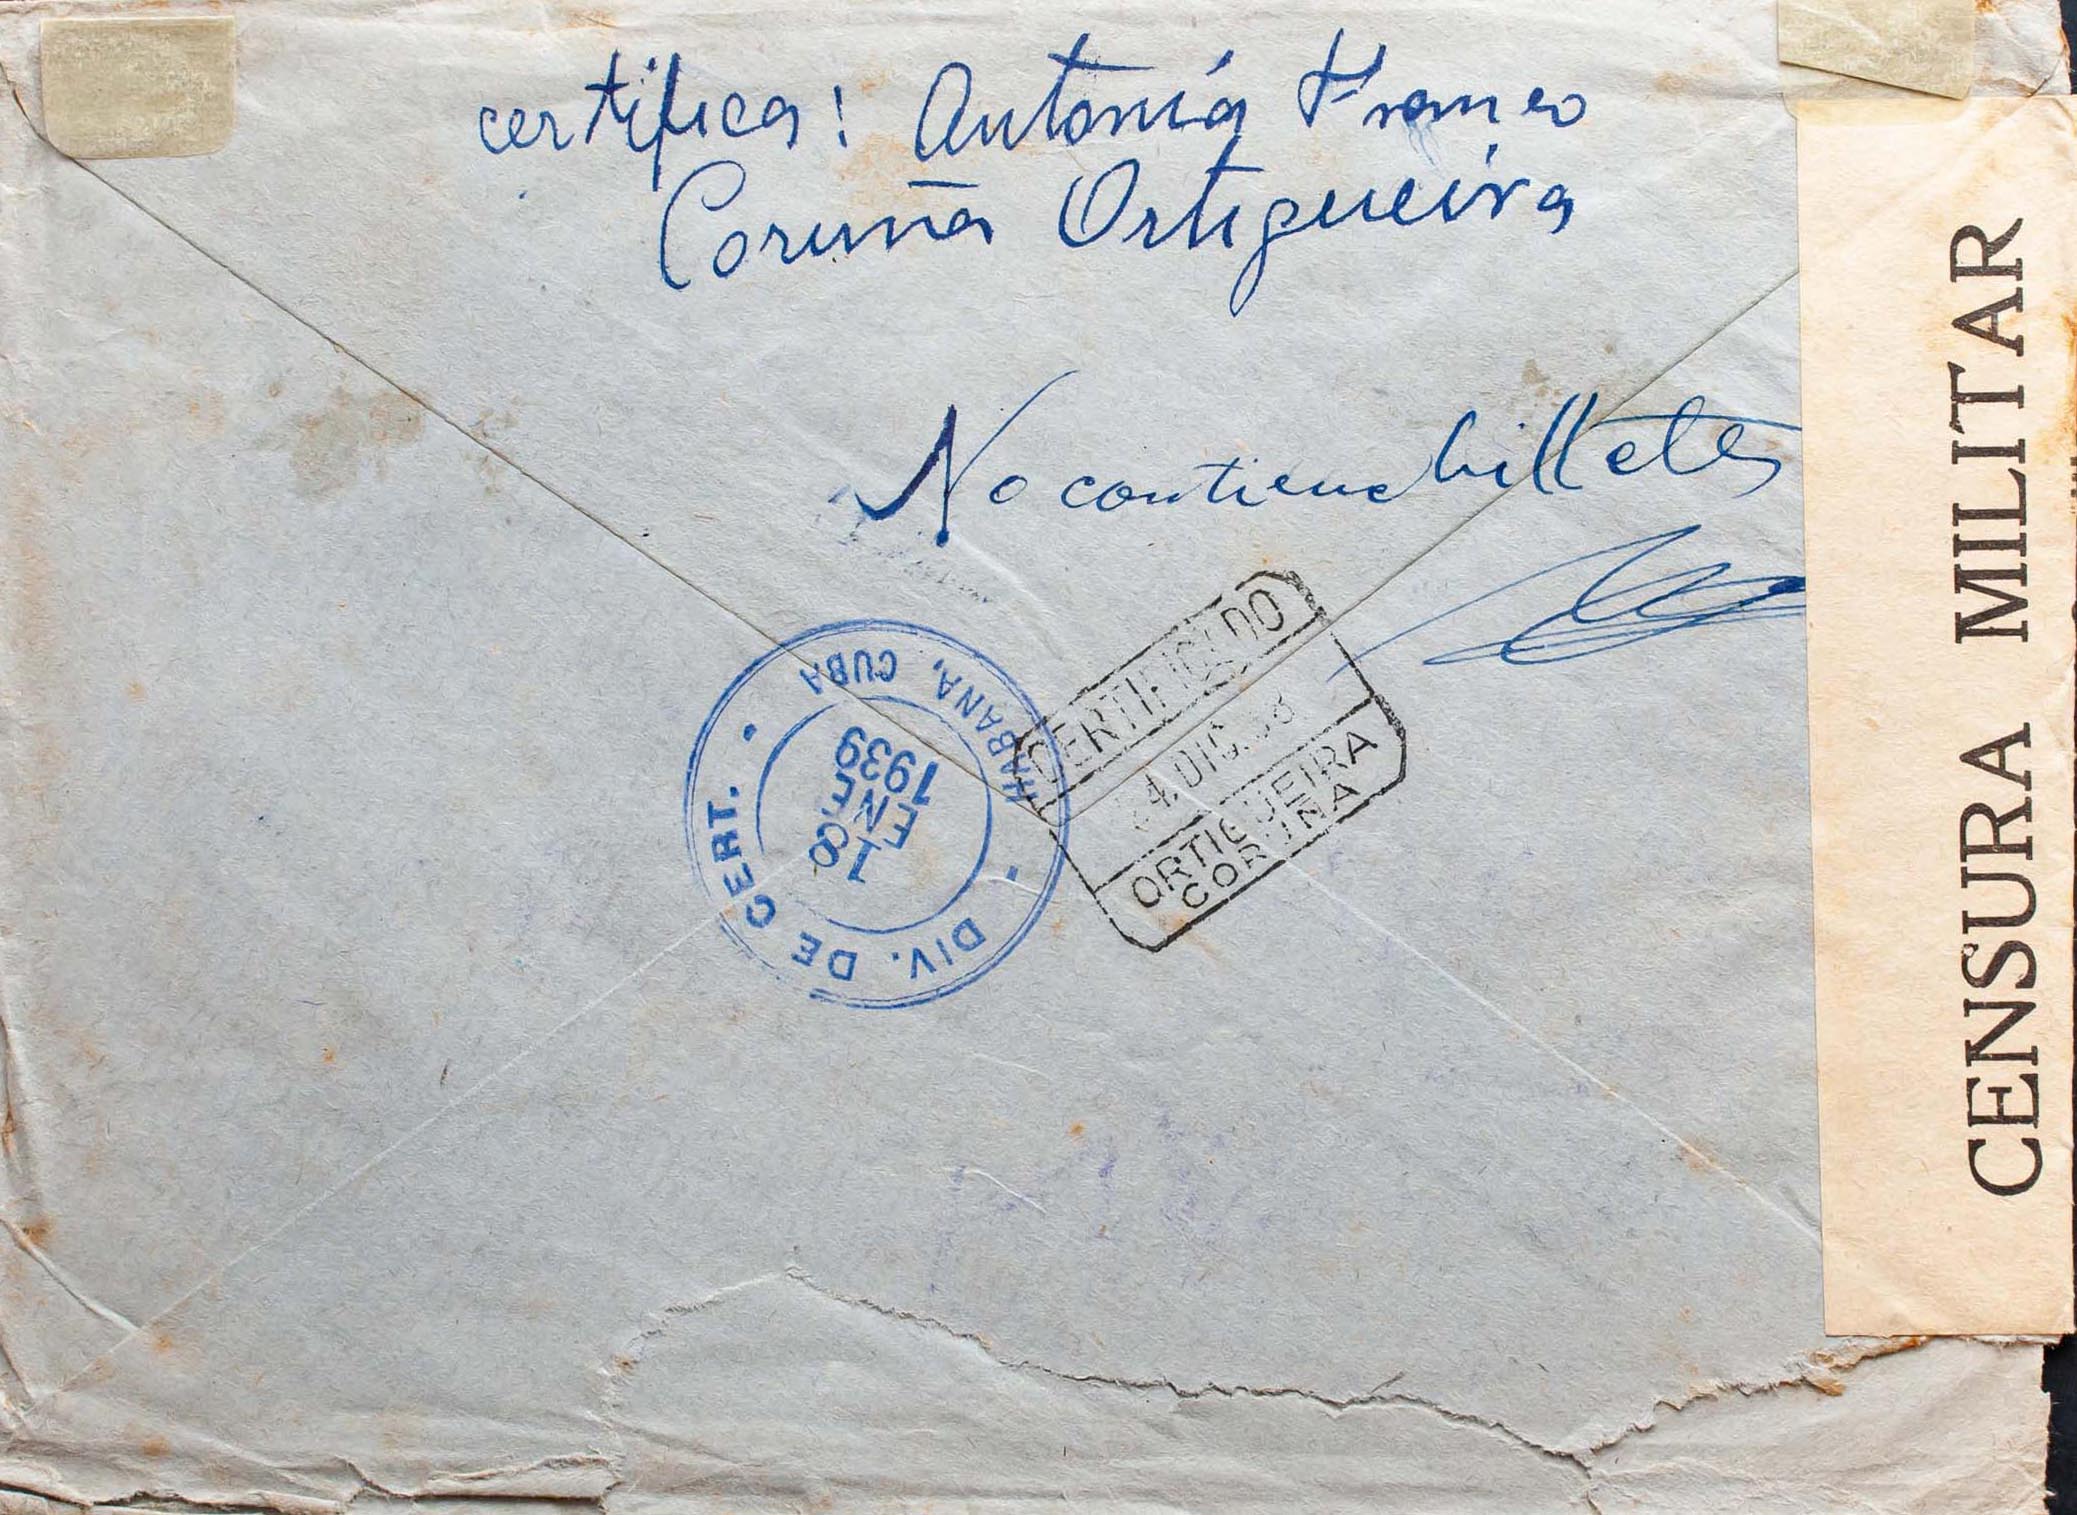 certifica: Antonia Franco
Coruña Ortigueira
No contiene billetes
CERTIFICADO
4. DIC. 38
ORTIGUEIRA
CORUÑA
HABANA, CUBA
18
ENE.
1939
DIV. DE CERT.
CENSURA MILITAR